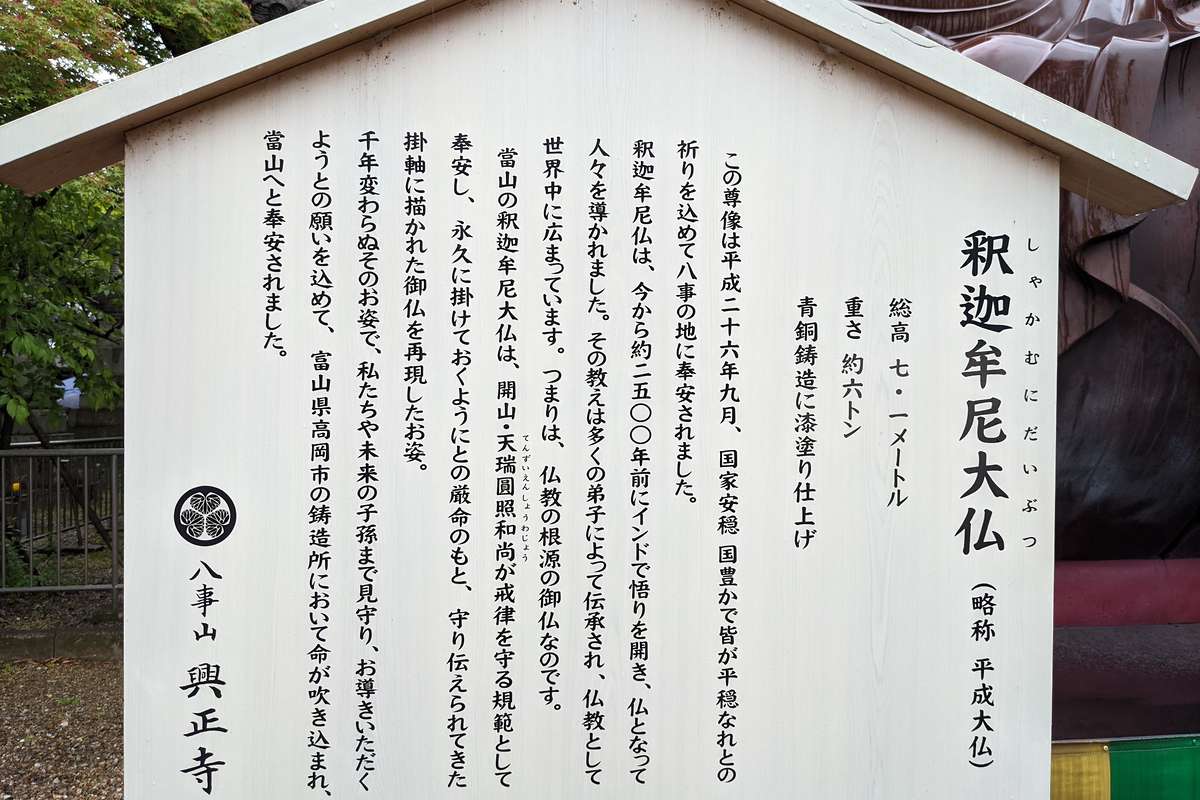 釈迦牟尼大仏（略称 平成大仏）
しゃかむにだいぶつ
総高 七・一メートル
重さ 約六トン
青銅鋳造に漆塗り仕上げ
この尊像は平成二十六年九月、国家安穏 国豊かで皆が平穏なれとの
祈りを込めて八事の地に奉安されました。
釈迦牟尼仏は、今から約二五〇〇年前にインドで悟りを開き、仏となって
人々を導かれました。その教えは多くの弟子によって伝承され、仏教として
世界中に広まっています。つまりは、仏教の根源の御仏なのです。
當山の釈迦牟尼大仏は、開山・天瑞圓照和尚が戒律を守る規範として
てんずいえんしょうわじょう
奉安し、永久に掛けておくようにとの厳命のもと、守り伝えられてきた
掛軸に描かれた御仏を再現したお姿。
千年変わらぬそのお姿で、私たちや未来の子孫まで見守り、お導きいただく
ようとの願いを込めて、富山県高岡市の鋳造所において命が吹き込まれ、
當山へと奉安されました。
八事山 興正寺